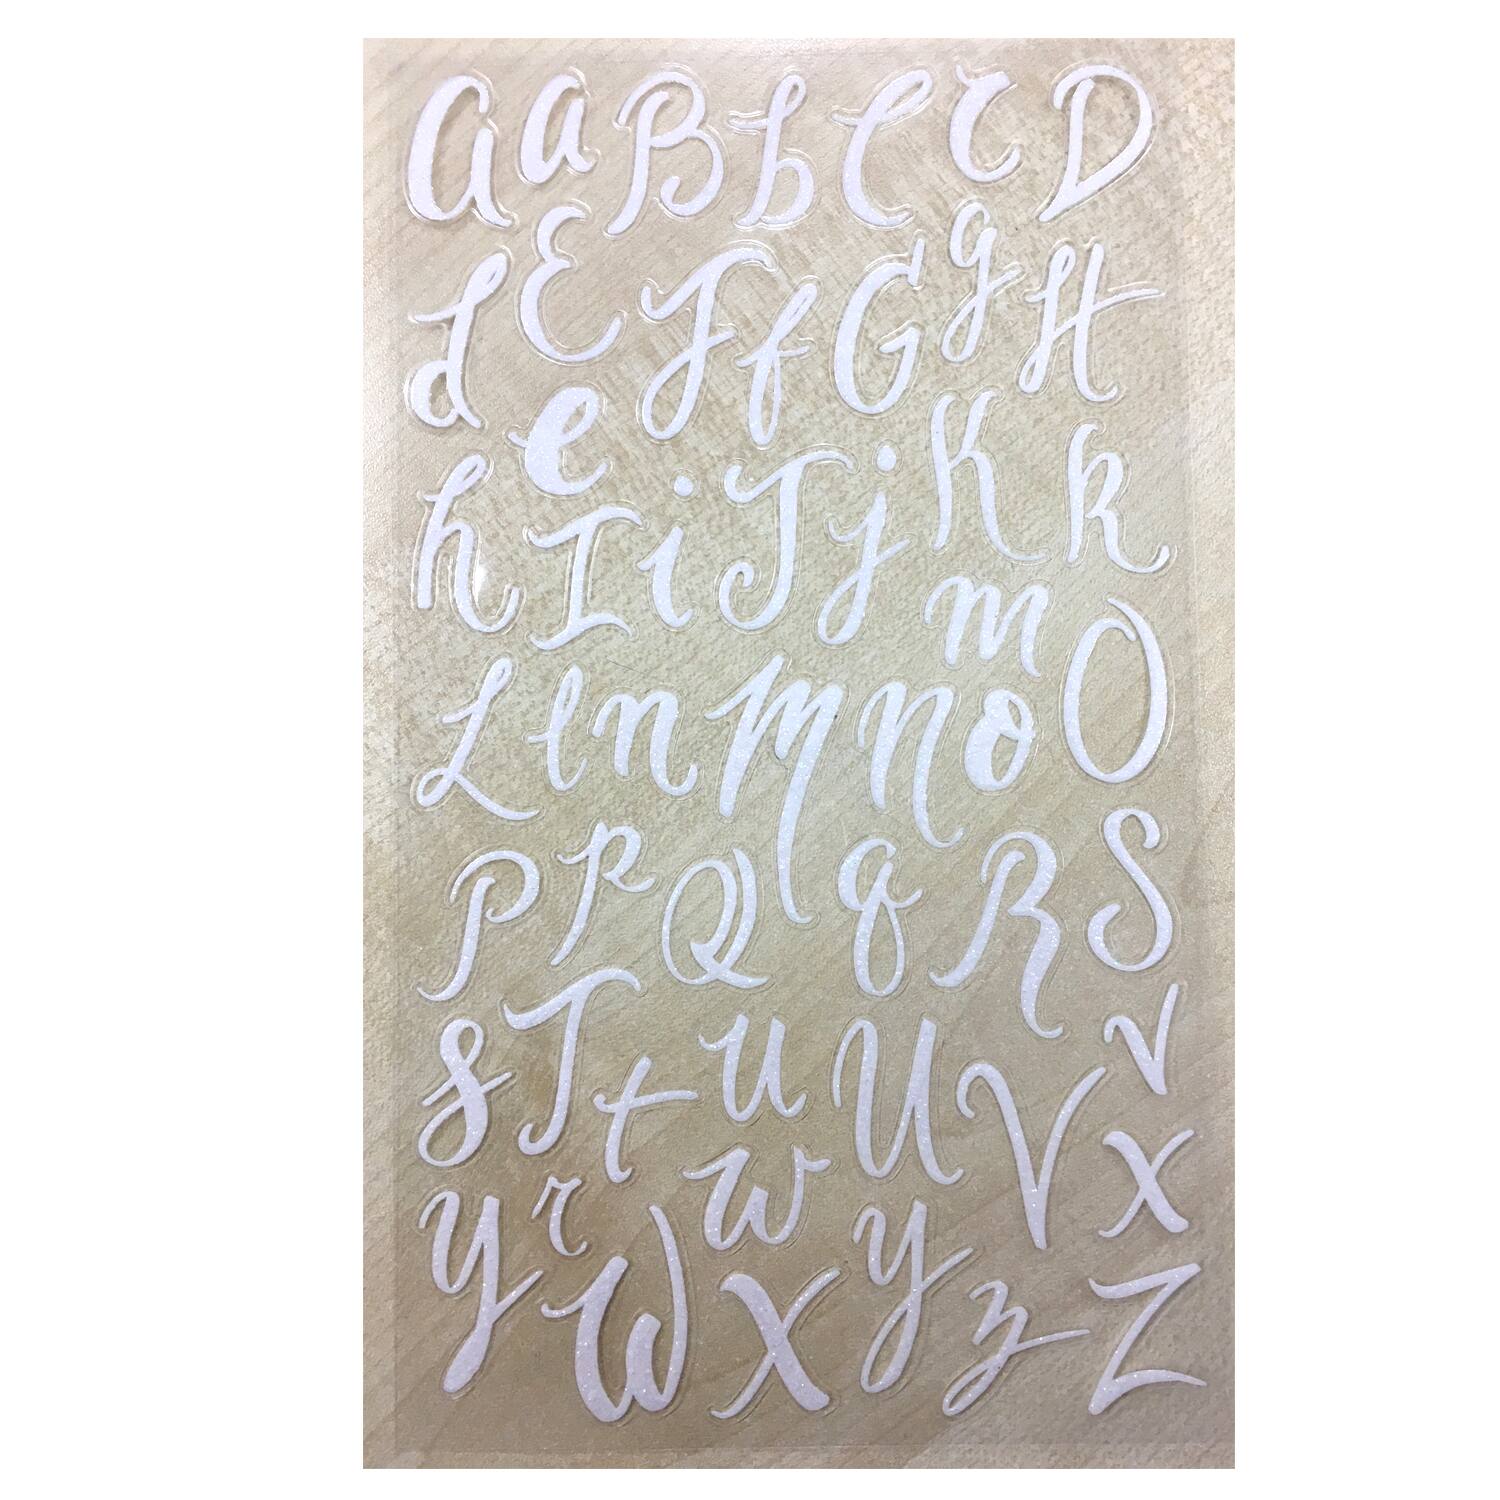 A a B b C c D
d E F f G g H
h e I i J j K k
L l n M N m o O
P p Q q R S
s T t u U V v
y r W w X Y z x Z